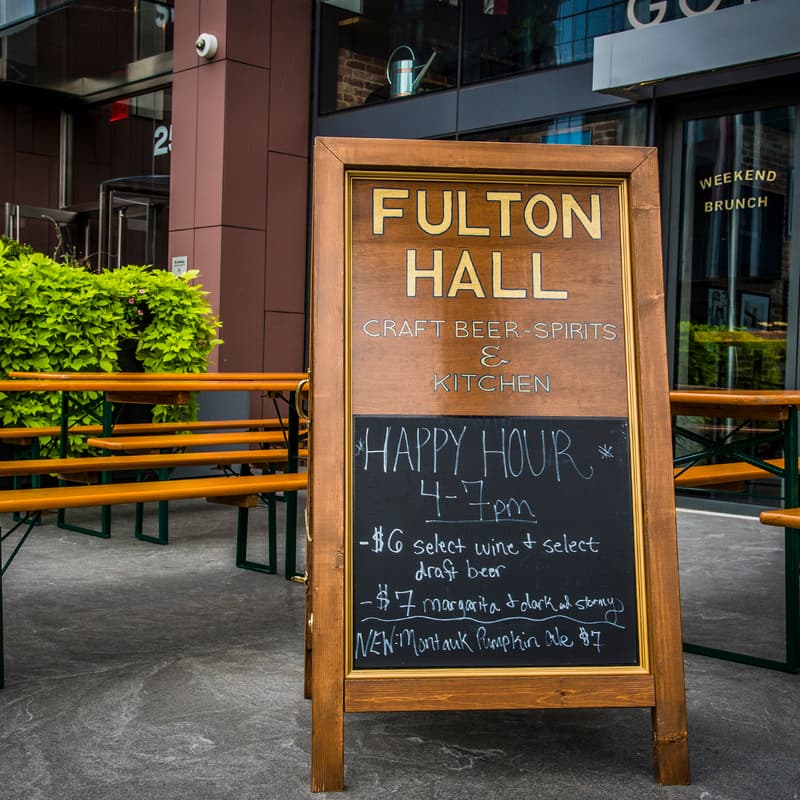 GO
25
WEEKEND
BRUNCH
FULTON
HALL
CRAFT BEER-SPIRITS
&
KITCHEN
*HAPPY HOUR*
4-7pm
-$6 select wine & select
draft beer
-$7 margarita & dark and stormy
NEW: Montauk Pumpkin Ale $7